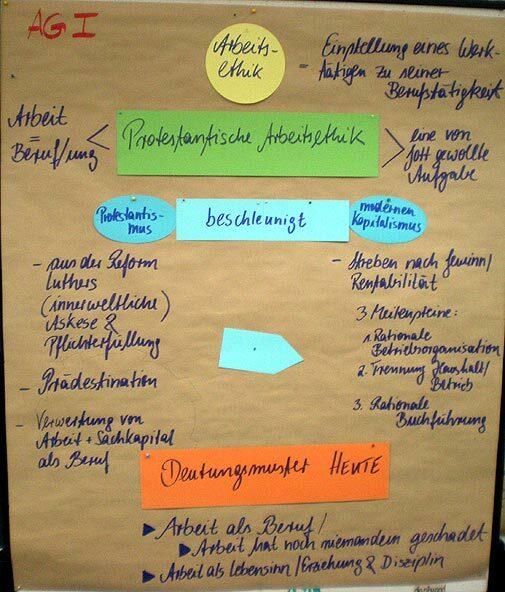 AG I
Arbeits-
ethik
= Einstellung eines Werk-
tätigen zu seiner
Berufstätigkeit
Arbeit
=
Beruf/ung
Protestantische Arbeitsethik
eine von
Gott gewollte
Aufgabe
Protestantis-
mus
beschleunigt
modernen
Kapitalismus
- aus der Reform
Luthers
(innerweltliche)
Askese &
Pflichterfüllung
- Prädestination
- Verwertung von
Arbeit + Sachkapital
als Beruf
- Streben nach Gewinn/
Rentabilität
3 Meilensteine:
1. Rationale
Betriebsorganisation
2. Trennung Haushalt/
Betrieb
3. Rationale
Buchführung
Deutungsmuster HEUTE
▶ Arbeit als Beruf/
▶ Arbeit hat noch niemandem geschadet
▶ Arbeit als Lebensinn/Erziehung & Disziplin